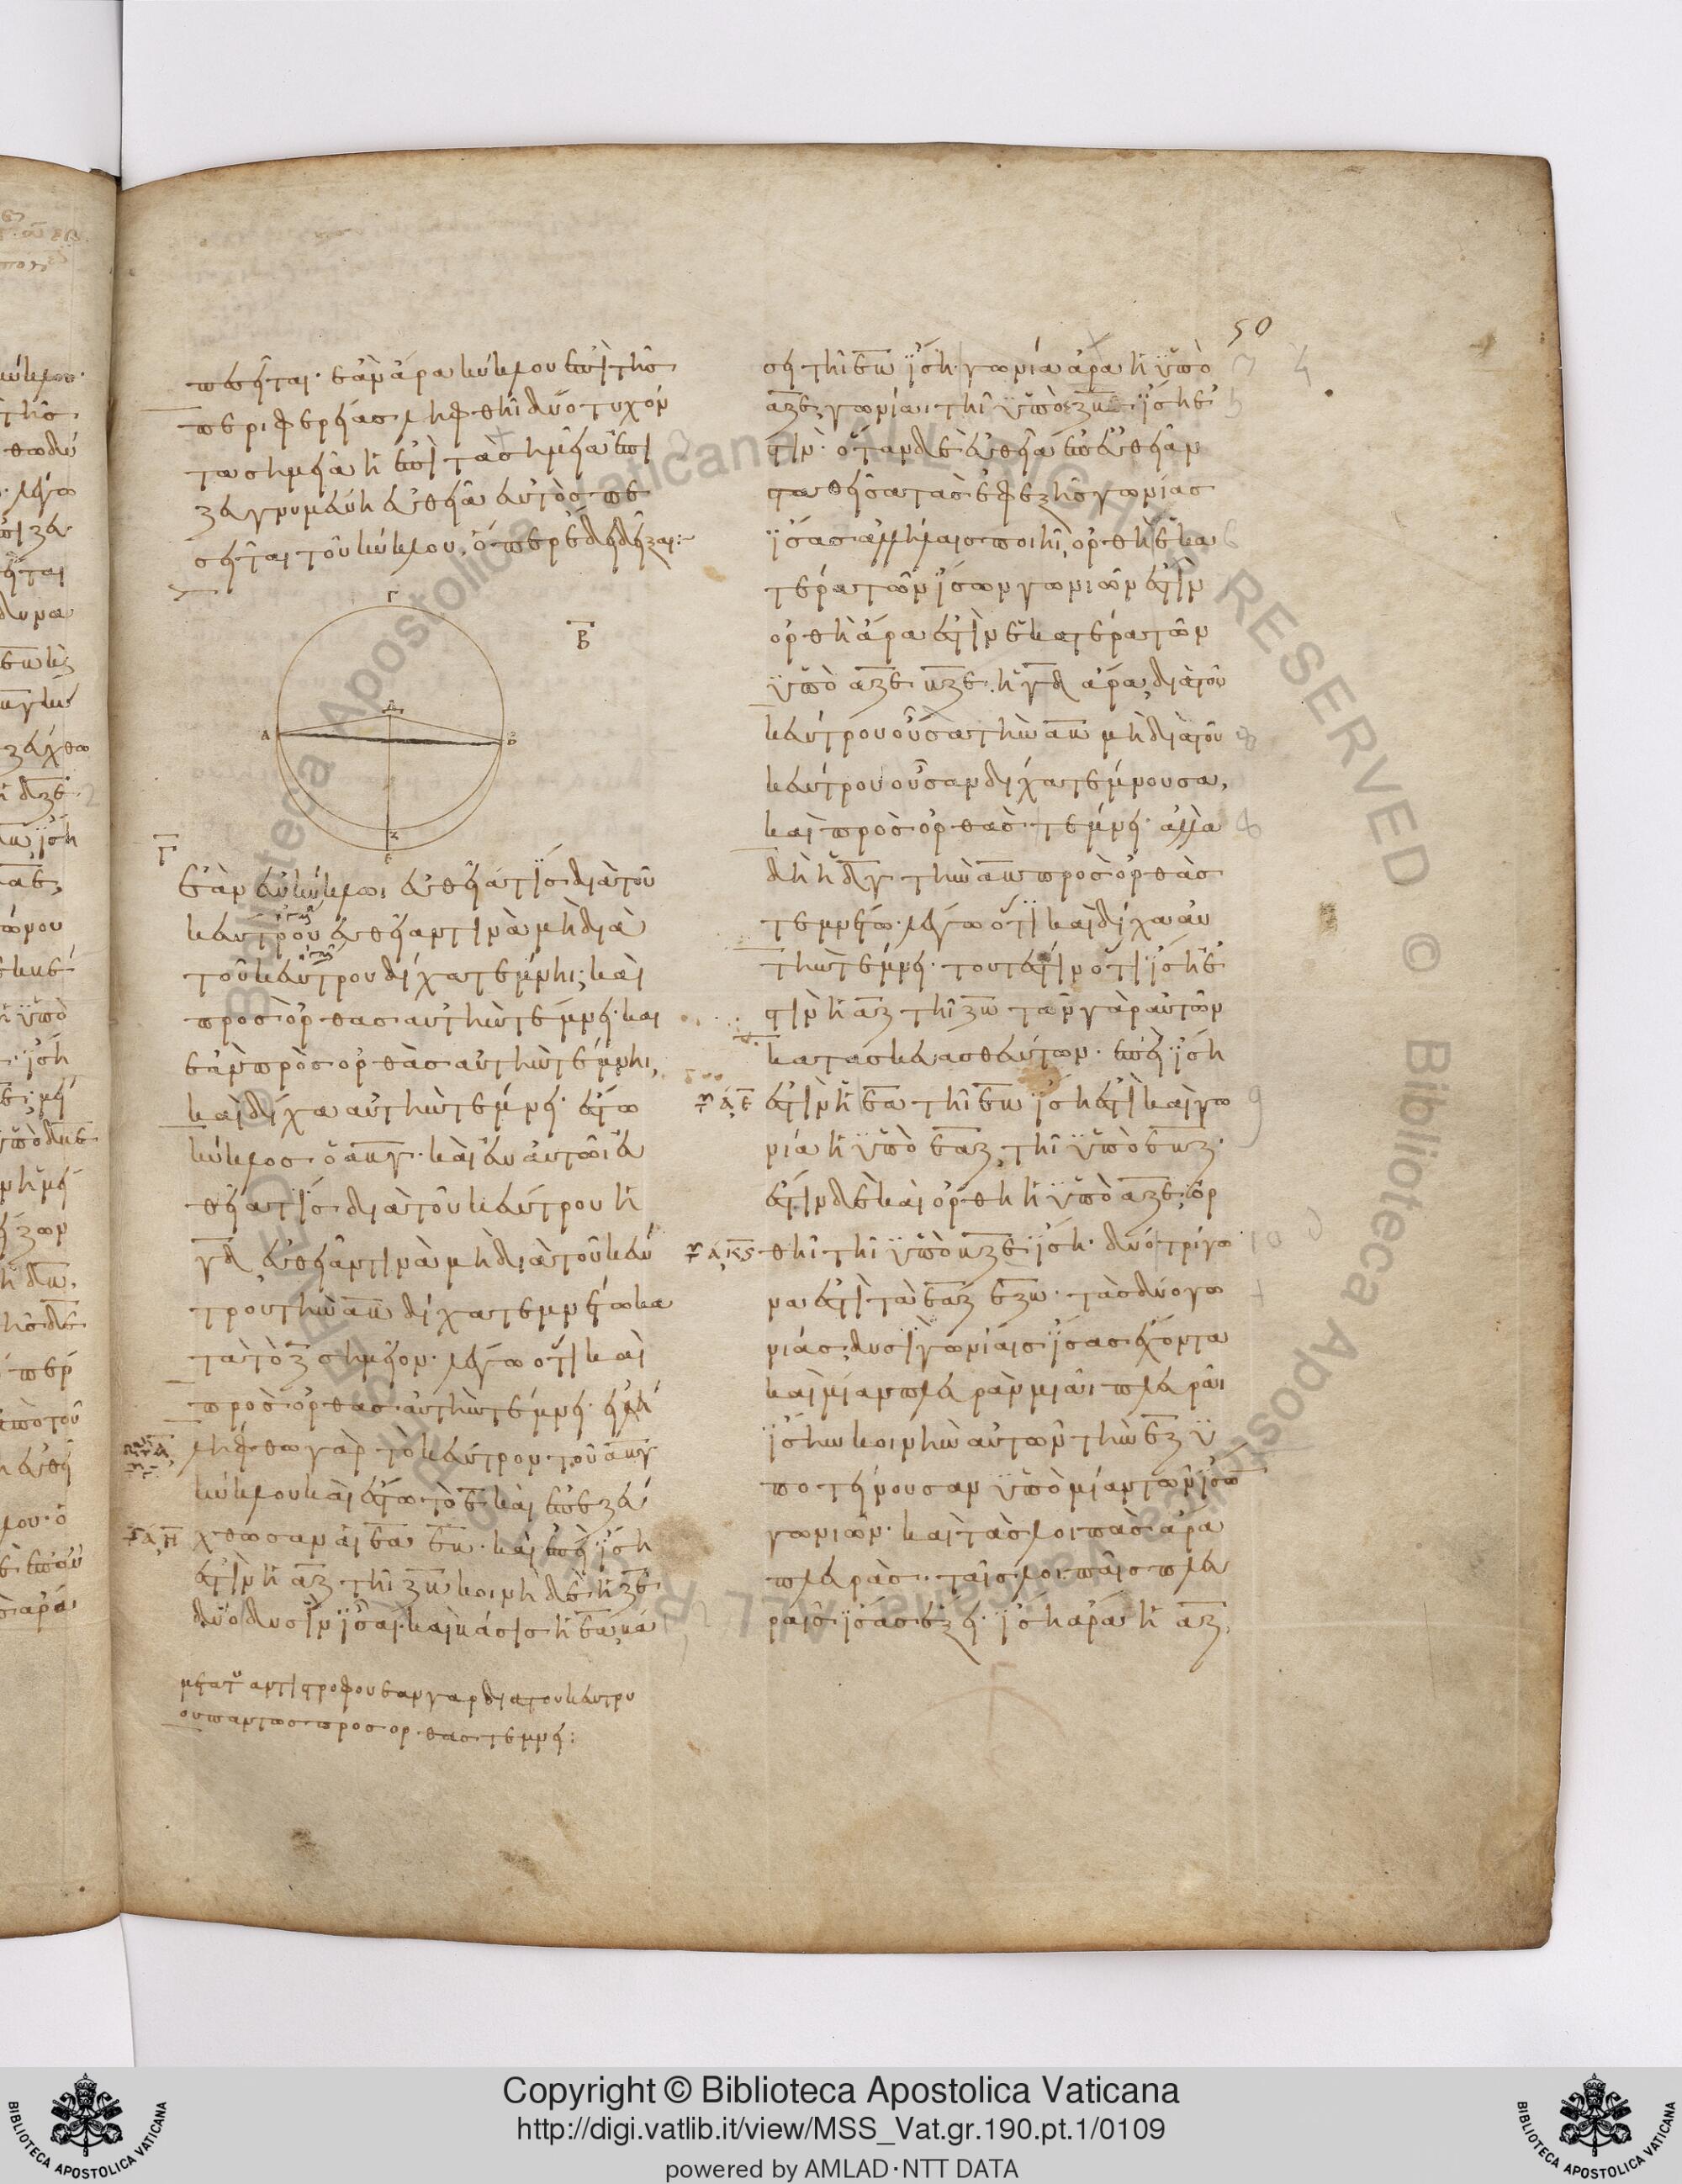 50
πεσεῖται. ἐὰν ἄρα κύκλου ἐπὶ τῆς
περιφερείας ληφθῆι δύο τυχόν
τα σημεῖα ἡ ἐπὶ τὰ σημεῖα ἐπι
ζευγνυμένη εὐθεῖα ἐντὸς πε
σεῖται τοῦ κύκλου, ὅπερ ἔδει δεῖξαι:
Γ
Β̄
Δ
Α
Β
Ζ
Ε
Γ̄
ἐὰν ἐν κύκλωι εὐθεῖά τις διὰ τοῦ
κέντρου εὐθεῖάν τινα μὴ διὰ
τοῦ κέντρου δίχα τέμνηι, καὶ
πρὸς ὀρθὰς αὐτὴν τέμνει. και
ἐὰν πρὸς ὀρθὰς αὐτὴν τέμνηι,
καὶ δίχα αὐτὴν τέμνει. ἔστω
κύκλος ὁ αβγ. καὶ ἐν αὐτῶι εὐ
θεῖά τις διὰ τοῦ κέντρου ἡ
γδ, εὐθεῖάν τινα μὴ διὰ τοῦ κέν
τρου τὴν αβ δίχα τεμνέτω κα
τὰ τὸ ζ σημεῖον. λέγω ὅτι καὶ
πρὸς ὀρθὰς αὐτὴν τέμνει. εἰ
λήφθω γὰρ τὸ κέντρον τοῦ αβγ
κύκλου καὶ ἔστω τὸ ε καὶ ἐπεζεύ
χθωσαν αἱ εα εβ. καὶ ἐπεὶ ἴση
ἐστὶν ἡ αζ τῆι ζβ κοινὴ δὲ ἡ ζε
δύο δυσὶν ἴσαι. καὶ βάσις ἡ εα, βά
μετα του αντιστροφου εαν γαρ δια του κεντρου
ου παντως προς ορθας τεμνει:
σει τῆι εβ ἴση. γωνία ἄρα ἡ ὑπὸ
αζε, γωνίαι τῆι ὑπὸ ζβε ἴση ἐ
στίν. ὅταν δὲ εὐθεῖα ἐπ' εὐθεῖαν
σταθεῖσα τὰς ἐφεξῆς γωνίας
ἴσας ἀλλήλαις ποιῆι, ὀρθὴ ἑκα
τέρα τῶν ἴσων γωνιῶν ἐστίν
ὀρθὴ ἄρα ἐστὶν ἑκατέρα τῶν
ὑπὸ αζε βζε. ἡ γδ ἄρα, διὰ τοῦ
κέντρου οὖσα τὴν αβ μὴ διὰ τοῦ
κέντρου οὖσαν δίχα τέμνουσα,
καὶ πρὸς ὀρθὰς τέμνει. ἀλλὰ
δὴ ἡ δγ τὴν αβ πρὸς ὀρθὰς
τεμνέτω. λέγω ὅτι καὶ δίχα αὐ
τὴν τέμνει. τουτέστιν ὅτι ἴση ἐ
στὶν ἡ αζ τῆι ζβ τῶν γὰρ αὐτῶν
κατασκευασθέντων. ἐπεὶ ἴση
ἐστὶν ἡ εα τῆι εβ ἴση ἐστὶ καὶ γω
νία ἡ ὑπὸ εαζ, τῆι ὑπὸ εβζ.
ἐστὶν δὲ καὶ ὀρθὴ ἡ ὑπὸ αζε, ὀρ
θῆι τῆι ὑπὸ βζε ἴση. δύο τρίγω
να ἐστὶ τὰ εαζ εζβ. τὰς δύο γω
νίας, δυσὶ γωνίαις ἴσας ἔχοντα
καὶ μίαν πλευρὰν μιᾶι πλευρᾶι
ἴσην κοινὴν αὐτῶν τὴν εζ ὑ
ποτείνουσαν ὑπὸ μίαν τῶν ἴσων
γωνιῶν. καὶ τὰς λοιπὰς ἄρα
πλευρὰς ταῖς λοιπαῖς πλευ
ραῖς ἴσας ἕξει. ἴση ἄρα ἡ αζ,
Copyright © Biblioteca Apostolica Vaticana
http://digi.vatlib.it/view/MSS_Vat.gr.190.pt.1/0109
powered by AMLAD·NTT DATA